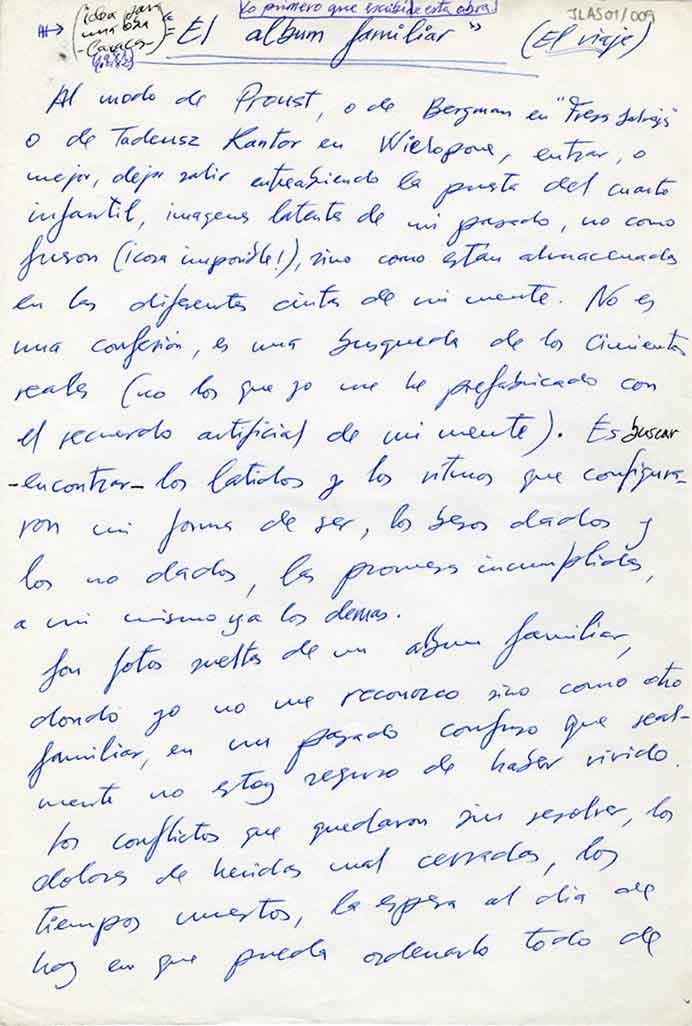 Lo primero que escribí de esta obra!
JLAS01/009
(idea para
una obra
-Caracas-
(1981)) = "El album familiar" (El viaje)
Al modo de Proust, o de Bergman en "Fresas Salvajes"
o de Tadeusz Kantor en Wielopole, entrar, o
mejor, dejar salir entreabriendo la puerta del cuarto
infantil, imagenes latentes de mi pasado, no como
fueron (¡cosa imposible!), sino como están almacenadas
en las diferentes cintas de mi mente. No es
una confesión, es una busqueda de los cimientos
reales (no los que yo me he prefabricado con
el recuerdo artificial de mi mente). Es buscar
-encontrar- los latidos y los ritmos que configura-
ron mi forma de ser, los besos dados y
los no dados, las promesas incumplidas,
a mi mismo y a los demas.
Son fotos sueltas de un album familiar,
donde yo no me reconozco sino como otro
familiar, en un pasado confuso que real-
mente no estoy seguro de haber vivido.
Los conflictos que quedaron sin resolver, los
dolores de heridas mal cerradas, los
tiempos muertos, la espera al dia de
hoy en que pueda ordenarlo todo de